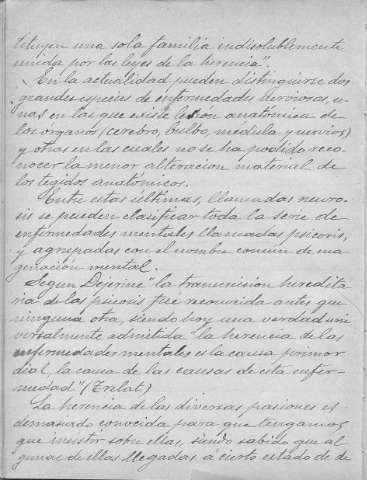 tituyen una sola familia indisolublemente
unida por las leyes de la herencia".
En la actualidad pueden distinguirse dos
grandes especies de enfermedades nerviosas, u-
nas en las que existe lesion anatómica de
los órganos (cerebro, bulbo, médula y nervios)
y otras en las cuales no se ha podido reco-
nocer la menor alteracion material de
los tegidos anatómicos.
Entre estas últimas, llamadas neuro-
sis se pueden clasificar toda la serie de
enfermedades mentales llamadas psicosis,
y agrupadas con el nombre comun de ena-
genacion mental.
Segun Dejerine "la transmision heredita-
ria de las psicosis fué reconocida antes que
ninguna otra, siendo hoy una verdad uni-
versalmente admitida "la herencia de las
enfermedades mentales es la causa primor-
dial, la causa de las causas de esta enfer-
medad" (Trelat)
La herencia de las diversas pasiones es
demasiado conocida para que tengamos
que insistir sobre ellas, siendo sabido que al-
gunas de ellas llegadas á cierto estado de de